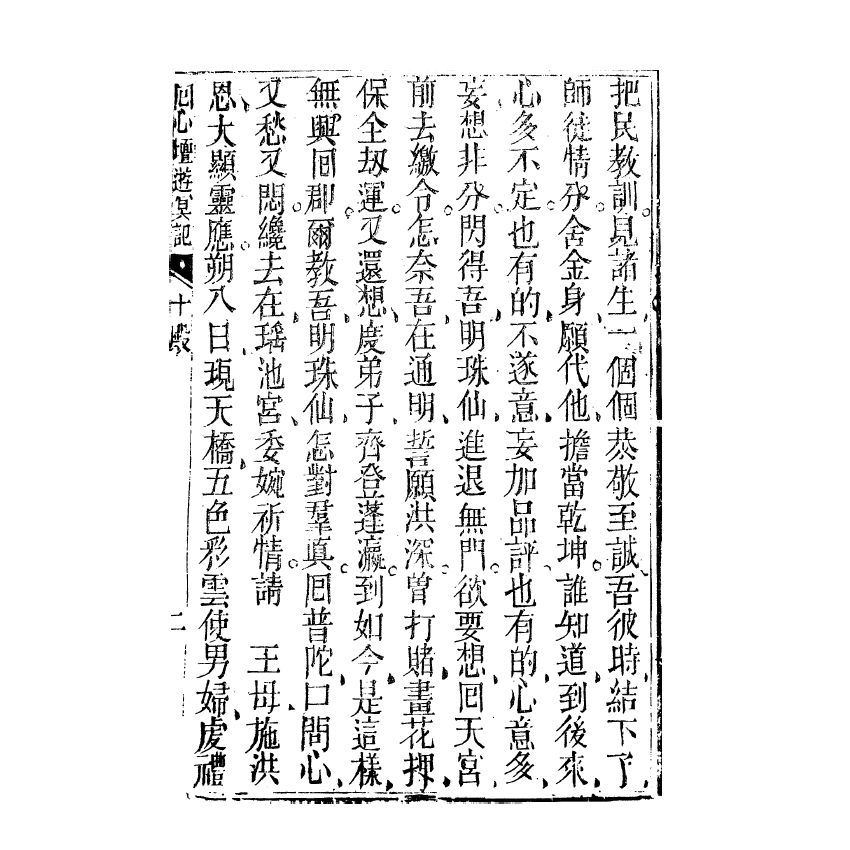 把民教訓見諸生一個個恭敬至誠吾彼時結下了
師徒情分舍金身願代他擔當乾坤誰知道到後來
心多不定也有的不遂意妄加品評也有的心意多
妄想非分閃得吾明珠仙進退無門欲要想囘天宮
前去繳令怎奈吾在通明誓願洪深曾打賭畫花押
保全刼運又還想度弟子齊登蓬瀛到如今是這樣
無興囘郡爾教吾明珠仙怎對羣真囘普陀口問心
又愁又悶纔去在瑤池宮委婉祈情請　王母施洪
恩大顯靈應朔八日現天橋五色彩雲使男婦虔禮
囘心壇遊冥記　十殿　二